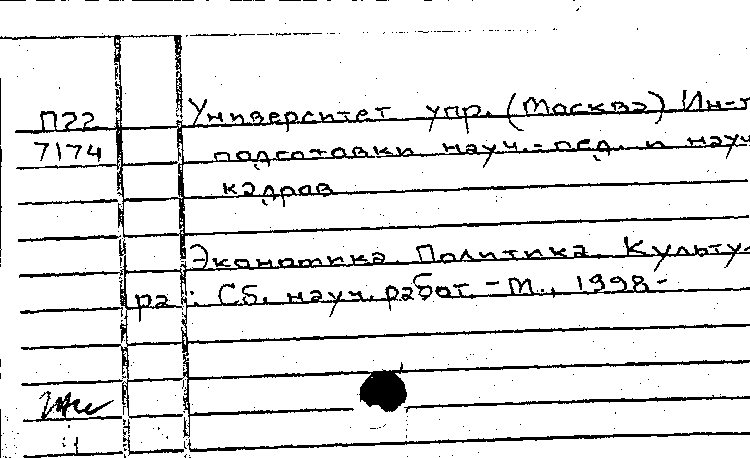 П22 Университет упр. (Москва) Ин-т
7174 подготовки науч.-пед. и науч
кадров
Экономика. Политика. Культу-
ра: Сб. науч. работ. - М., 1998-